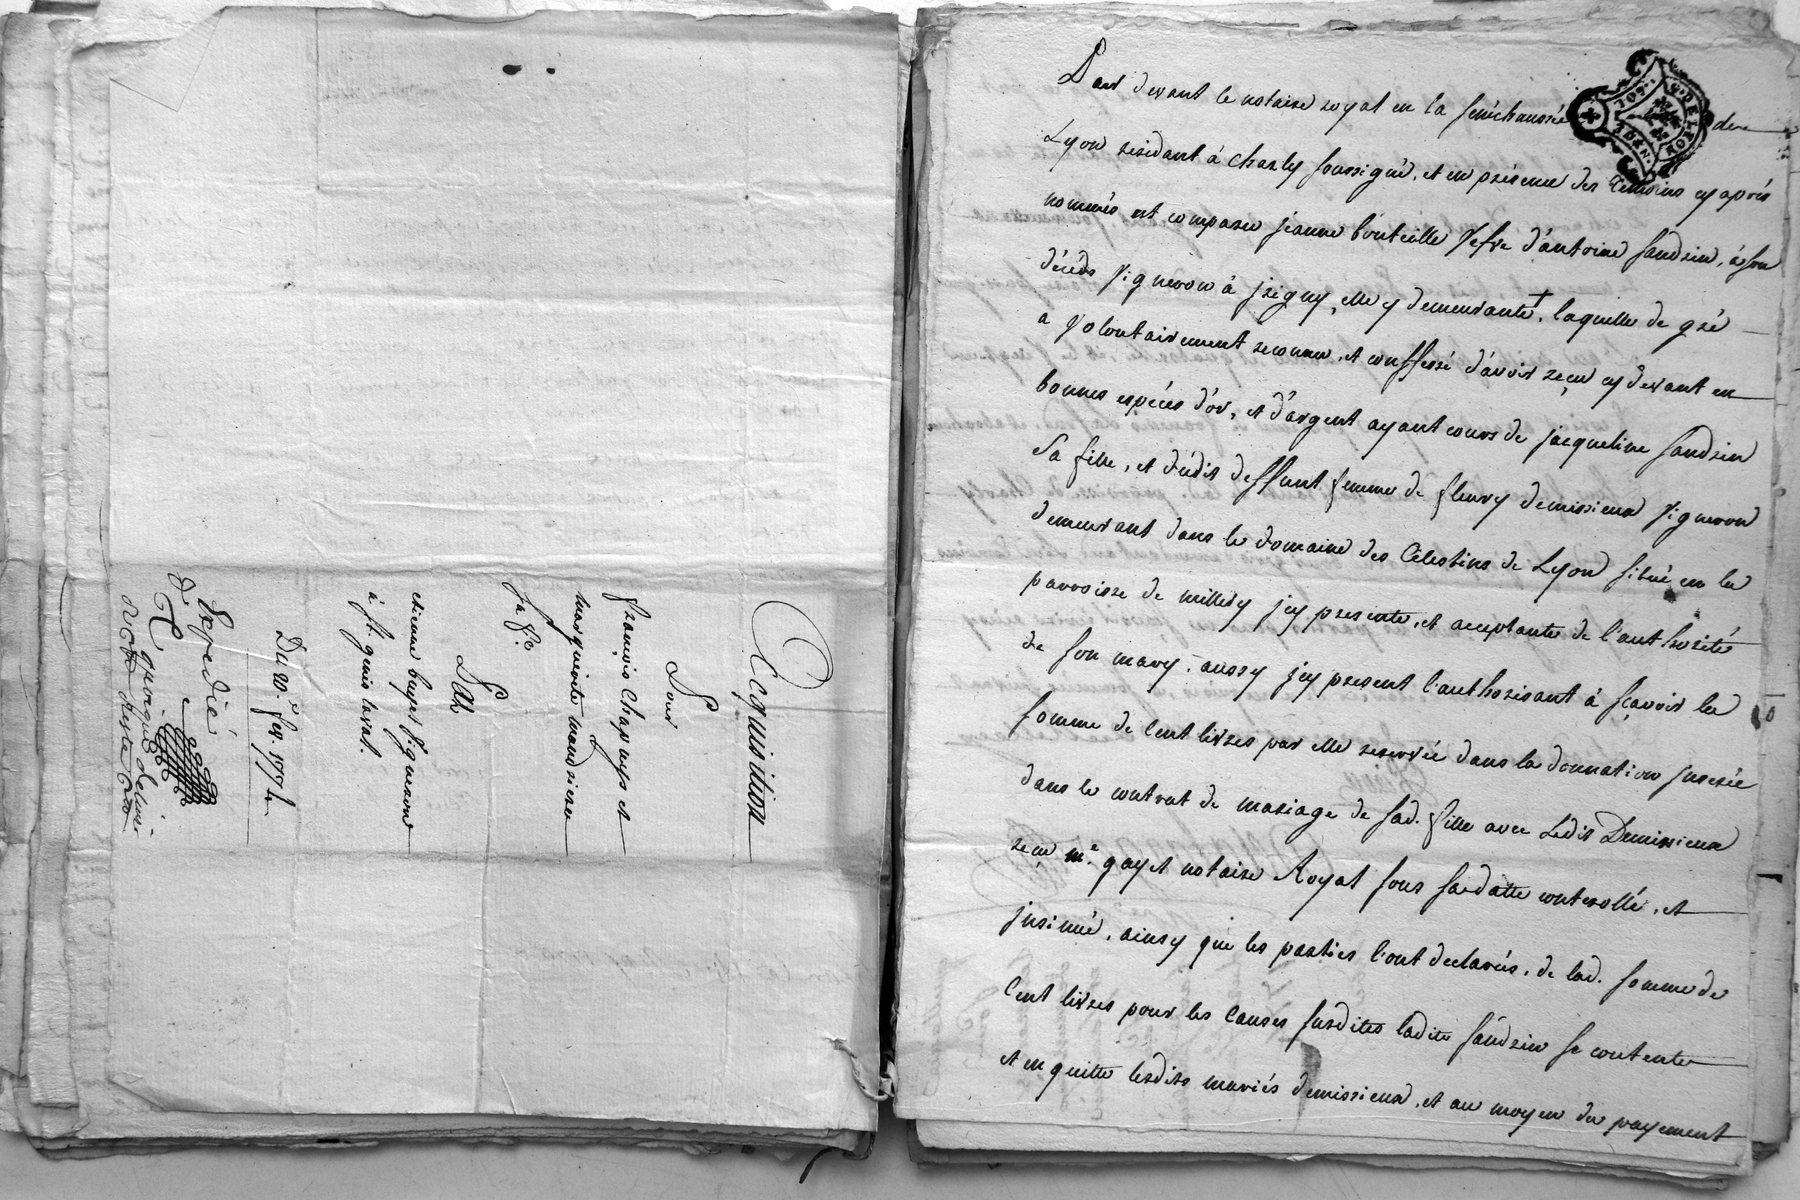 Acquisition
Pour
françois Chapuys et
marguerite mondesiere
sa fe.
Par
etienne buyet Vigneron
à st. genis laval.
Du 20e. fev. 1774
Expedié
Par devant le notaire royal en la sénéchaussée de
Lyon residant à Charly soussigné, et en présence des témoins cy après
nommés est comparu jeanne bouteille Vefve d'antoine sandrin, à son
décéds Vigneron à jrigny, elle y demeurante, laquelle de gré
a Volontairement reconnu, et conffessé d'avoir reçu cy devant en
bonnes espéces d'or, et d'argent ayant cours de jacqueline sandrin
Sa fille, et dudit deffunt femme de fleury demissieux Vigneron
demeurant dans le domaine des Célestins de Lyon situé en la
parroisse de millery jcy presente, et acceptante de l'authorité
de son mary, aussy jcy present l'authorisant à sçavoir la
somme de Cent livres par elle reservée dans la donnation jnserée
dans le contrat de mariage de sad. fille avec Ledit Demissieux
reçu me. gayet notaire Royal sous sa datte controllé, et
jnsinué, ainsy que les parties l'ont declarés, de lad. somme de
Cent livres pour les Causes susdites ladite sandrin se contente
et en quitte lesdits mariés demissieux, et au moyen du payement